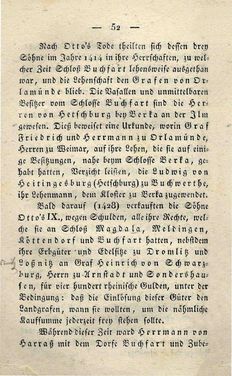 — 52 —
Nach Otto's Tode theilten sich dessen drey
Söhne im Jahre 1414 in ihre Herrschaften, zu wel-
cher Zeit Schloß Buchfart lehensweise ausgethan
war, und die Lehenschaft den Grafen von Or-
lamünde blieb. Die Vasallen und unmittelbaren
Besitzer vom Schlosse Buchfart sind die Her-
ren von Hetschburg bey Berka an der Ilm
gewesen. Dieß beweiset eine Urkunde, worin Graf
Friedrich und Herrmann zu Orlamünde,
Herren zu Weimar, auf ihre Lehen, die sie auf eini-
ge Besitzungen, nahe beym Schlosse Berka, ge-
habt hatten, Verzicht leisten, die Ludwig von
Heitingesburg (Hetschburg) zu Buchwerthe,
ihr Lehenmann, dem Kloster zu Berka zugewendet.
Bald darauf (1428) verkauften die Söhne
Otto's IX, wegen Schulden, alle ihre Rechte, wel-
che sie an Schloß Magdala, Meldingen,
Köttendorf und Buchfart hatten, nebst dem
ihre Erbgüter und Edelsitze zu Dromlitz und
Loßnitz an Graf Heinrich von Schwarz-
burg, Herrn zu Arnstadt und Sondershau-
sen, für vier hundert rheinische Gulden, unter der
Bedingung: daß die Einlösung dieser Güter den
Landgrafen, wann sie wollten, um die nähmliche
Kaufsumme jederzeit frey stehen sollte.
Während dieser Zeit ward Herrmann von
Harraß mit dem Dorfe Buchfart und Zube-